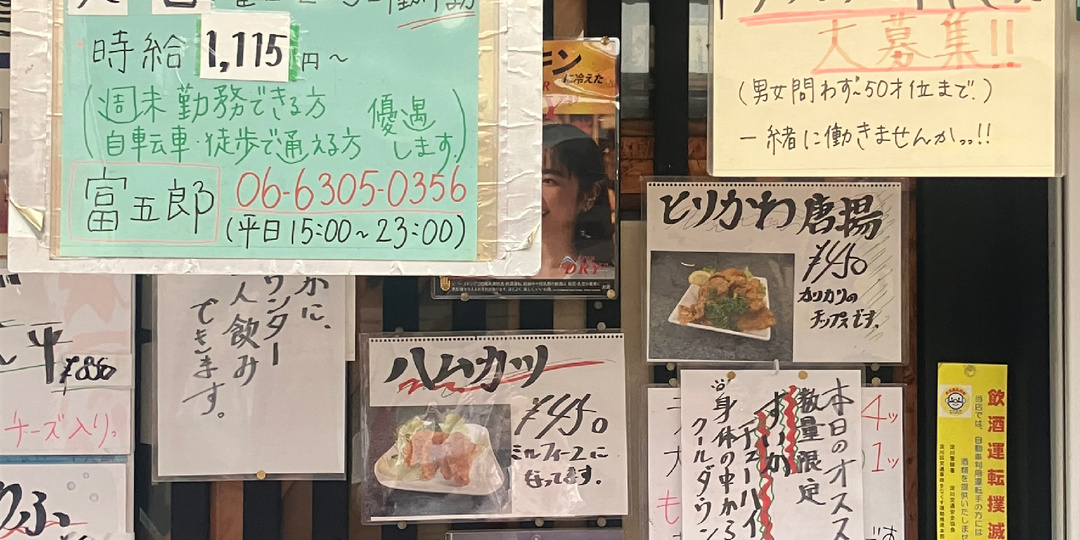 時給 1,115円～
(週末勤務できる方
自転車・徒歩で通える方
優遇
します。)
富五郎 06-6305-0356
(平日15:00～23:00)
大募集!!
(男女問わず～50才位まで。)
一緒に働きませんかっ。!!
キン
に冷えた
DRY
とりかわ唐揚
¥450
カリカリの
チップスです。
かに、
ウンター
人飲み
できます。
¥880
チーズ入り。
ハムカツ
¥450
ミルフィーユに
なってます。
本日のオスス
数量限定
すいか
チューハイ
身体の中から
クールダウン
4ッ
1ッ
りふ
飲酒運転撲滅
当店では、自動車利用運転手の方には
酒類を提供いたしませ